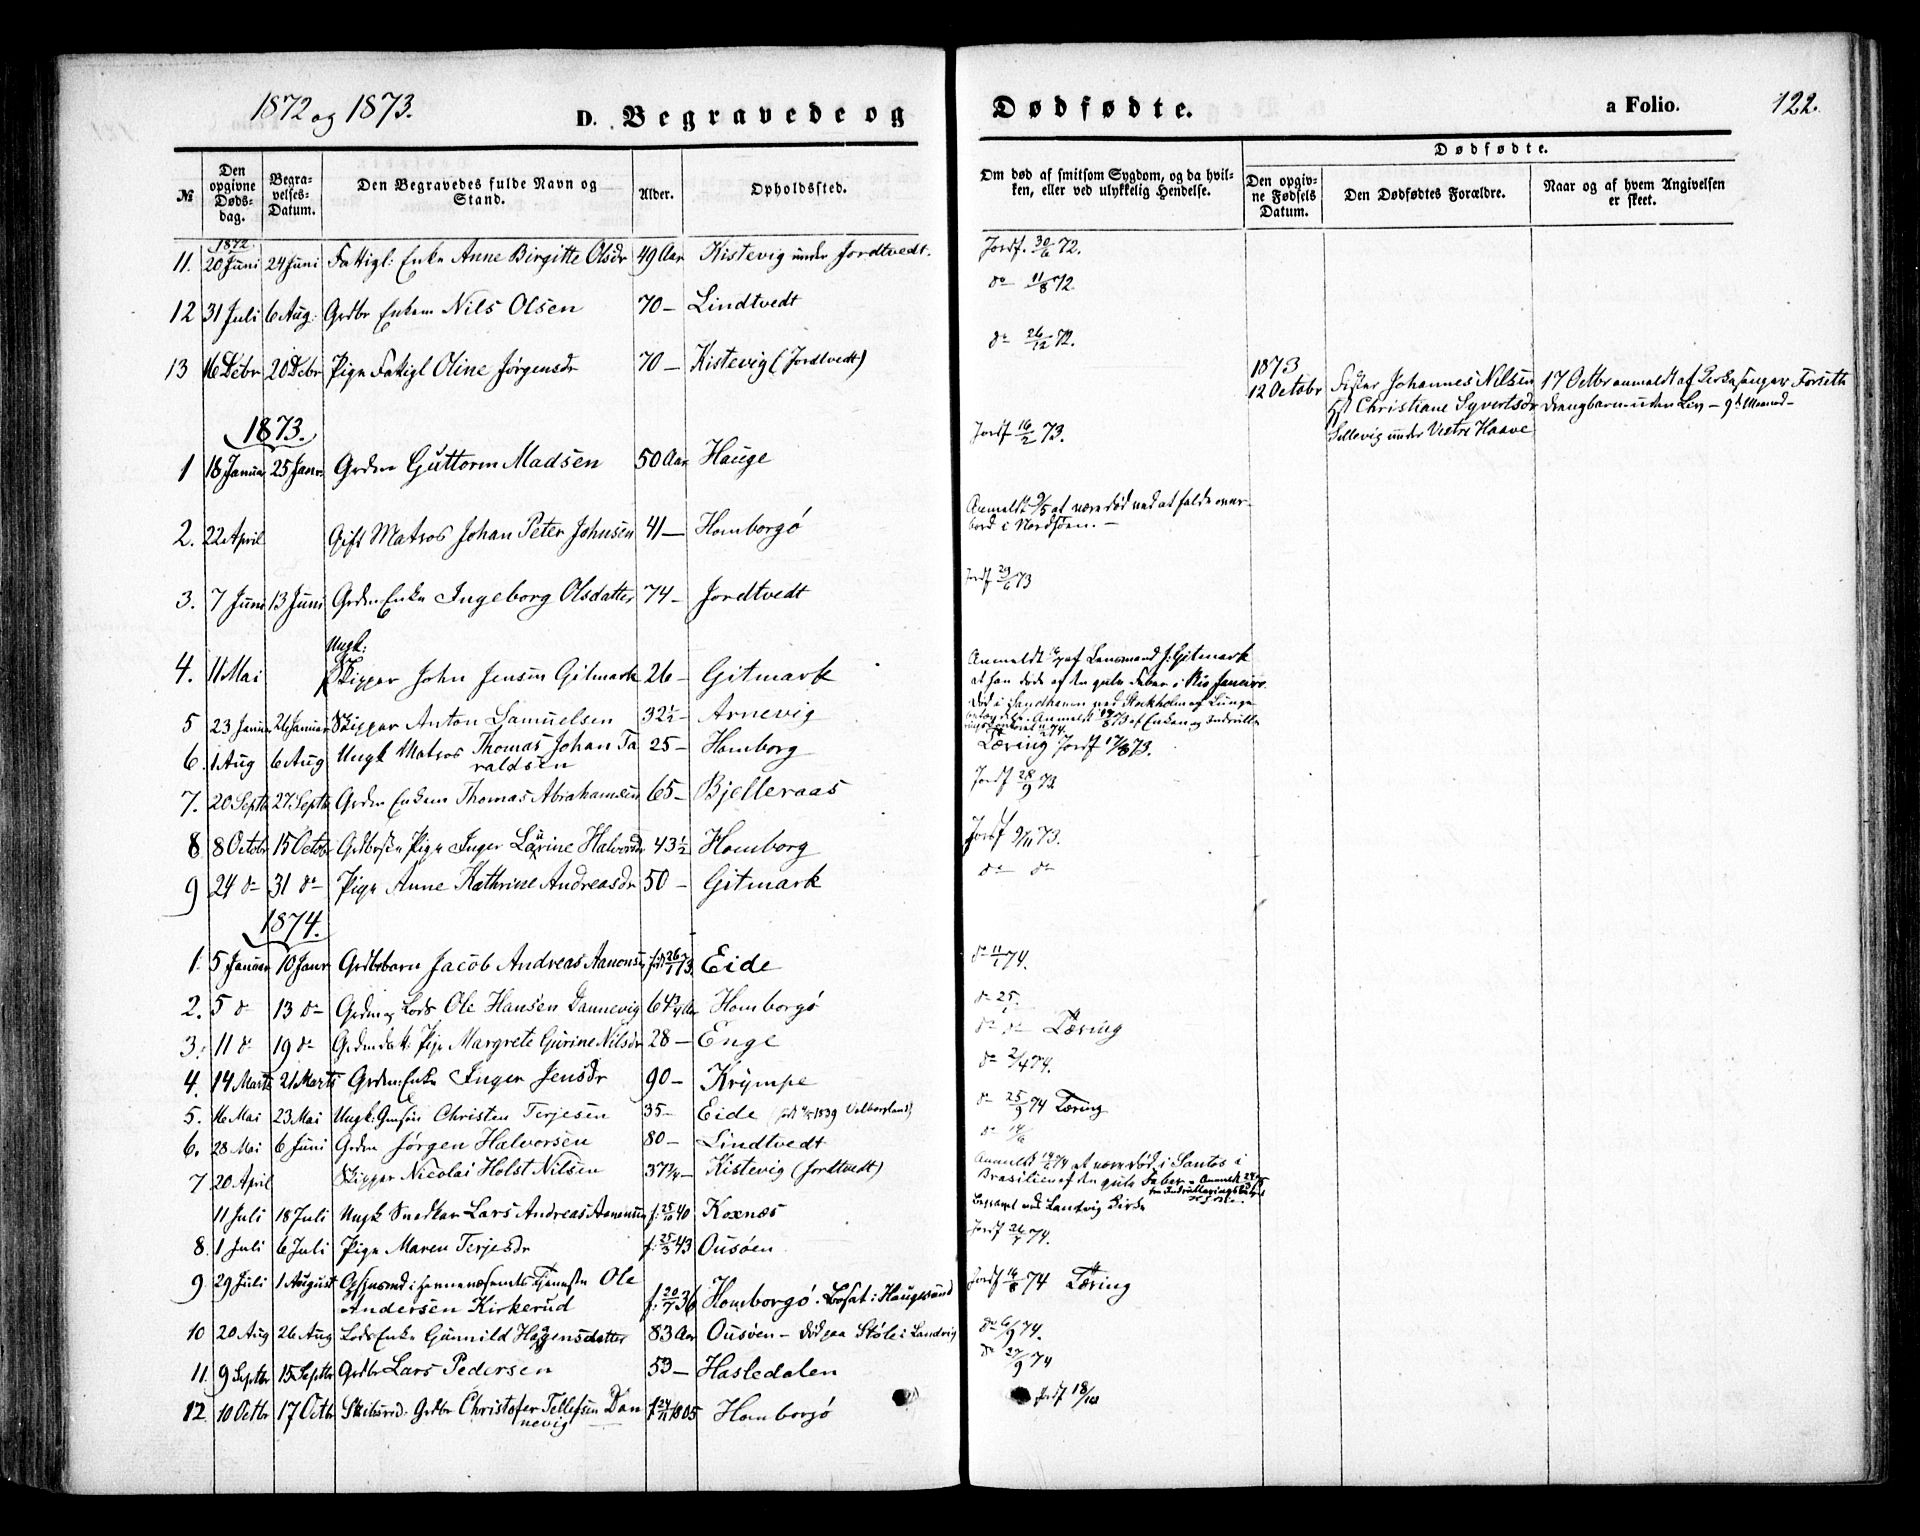 1872 og 1873.
D. Begravede og
Dødfødte.
a Folio.
122.
№
Den opgivne Døds-dag.
Begra-velses-Datum.
Den Begravedes fulde Navn og Stand.
Alder.
Opholdssted.
Om død af smitsom Sygdom, og da hvil-ken, eller ved ulykkelig Hendelse.
Dødfødte.
Den opgiv-ne Fødsels Datum.
Den Dødfødtes Forældre.
Naar og af hvem Angivelsen er skeet.
1872
11. 20 Juni 24 Juni Fattigl: Enke Anne Birgitte Olsdr 49 Aar Kistevig under Jordtvedt. Jordf. 30/6 72.
12 31 Juli 6 Aug: Grdbr Enkem Nils Olsen 70 — Lindtvedt do 11/8 72
13 16 Debr 20 Debr Pige Fattigl Oline Jørgensdr 70 — Kistevig (Jordtvedt) do 26/12 72.
1873
12 Octobr Fisker Johannes Nilsen 17 Octbr anmeldt af Kirkesanger Forseth
Christiane Syvertsdr Drengbarn uden Liv — 9de Maaned —
Sellevig under Vestre Haave
1873.
1 18 Januar 25 Janr. Grdm Guttorm Madsen 50 Aar Hauge Jordf 16/2 73.
2. 22 April Gift Matros Johan Peter Johnsen 41 — Homborgø Anmeldt 9/5 at være død ved at falde over-
bord i Nordsøen. —
3. 7 Juni 13 Juni Grdm Enke Ingeborg Olsdatter 74 — Jordtvedt Jordf 29/6 73
Ungk:
4. 11 Mai Skipper John Jensen Gitmark 26 — Gitmark Anmeldt af Lensmand J. Gitmark
at han døde af den gule Feber i Rio Janeiro.
5 23 Januar 26 Januar Skipper Anton Samuelsen 32½ — Arnevig Død i Sandhamn ved Stockholm af Lunge-
Anmeldt af Enken og Indrulle
6. 1 Aug 6 Aug Ungk Matros Thomas Johan Ta
raldsen 25 — Homborg Tæring Jordf 17/8 73.
7. 20 Septb 27 Septb Grdm Enkem Thomas Abrahamsen 65 — Bjelleraas Jordf 28/9 73
8 8 Octobr 15 Octobr Pige Inger Laurine Halvorsdr 43½ Homborg Jordf 9/11 73.
9 24 do 31 do Pige Anne Kathrine Andreasdr 50 — Gitmark do do
1874.
1. 5 Januar 10 Janr Grdbrbarn Jacob Andreas Aanonsen født 26/7 73. Eide do 11/1 74.
2. 5 do 13 do Grdm og Lods Ole Hansen Dannevig 64¾ Aar Homborgø do 25.
3. 11 do 19 do Pige Margrete Gurine Nilsdr 28 — Enge do do Tæring
4. 14 Marts 21 Marts Grdm: Enke Inger Jensdr 90 — Krympe do 2/4 74.
5. 16 Mai 23 Mai Ungk: Christen Terjesen 35 — Eide do 25/9 74 Tæring
6. 28 Mai 6 Juni Grdm Jørgen Halvorsen 80 — Lindtvedt do 14/6
7 20 April Skipper Nicolai Holst Nilsen 37¾ — Kistevig (Jordtvedt) Anmeldt 14/6 74 at være død i Santos i
Brasilien af den gule Feber
11 Juli 18 Juli Ungk Snedker Lars Andreas Aanonsen f: 25/10 40 Koxnæs Begravet ved Landvig Kirke
8. 1 Juli 6 Juli Pige Maren Terjesdr f: 25/3 43 Ousøen Jordf 26/7 74.
9. 29 Juli 1 August Tjeneste Ole
Andersen Kirkerud f: 20/7 36 Homborgø. Bosat i Haugesund Jordf 16/8 74 Tæring
10 20 Aug 26 Aug Lods Enke Gunnild Haagensdatter 83 Aar Ousøen — død paa Støle i Landvig do 6/9 74.
11. 9 Septbr 15 Septbr Grdbr Lars Pedersen 53 — Hasledalen do 27/9 74
12. 10 Octbr 17 Octbr Skibsred: Grdbr Christofer Tellefsen Dan
nevig f 24/11 1805 Homborgø Jordf 18/10